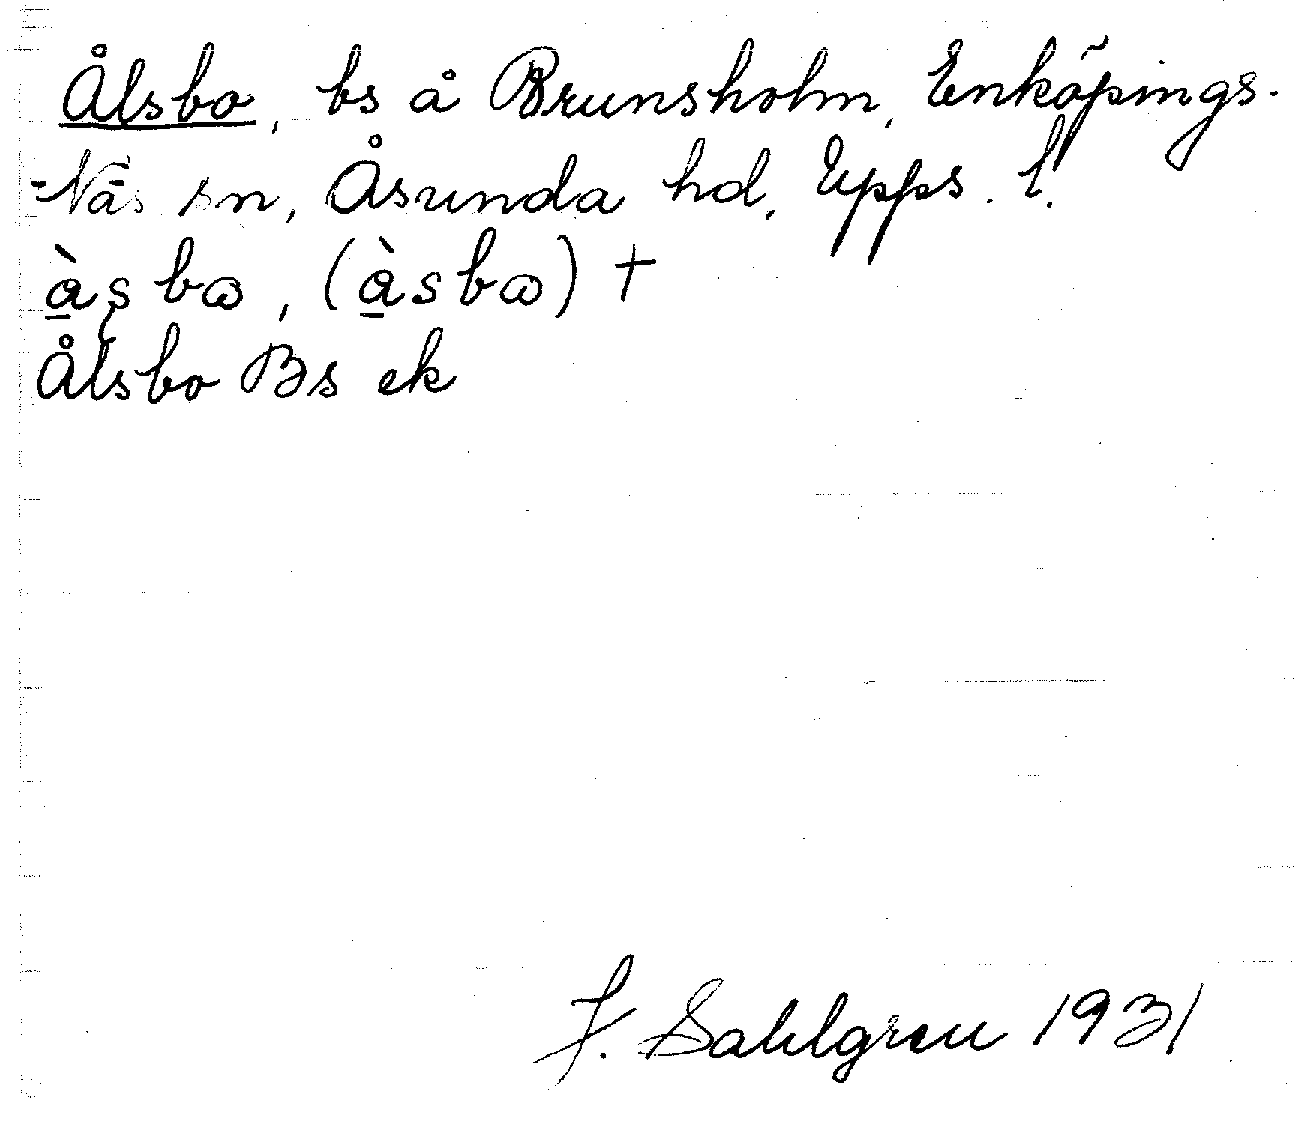 Ålsbo, bs å Brunsholm, Enköpings-
-Näs sn, Åsunda hd, Upps. l.
à̱ṣbɷ, (à̱sbɷ) +
Ålsbo Bs ek
J. Sahlgren 1931